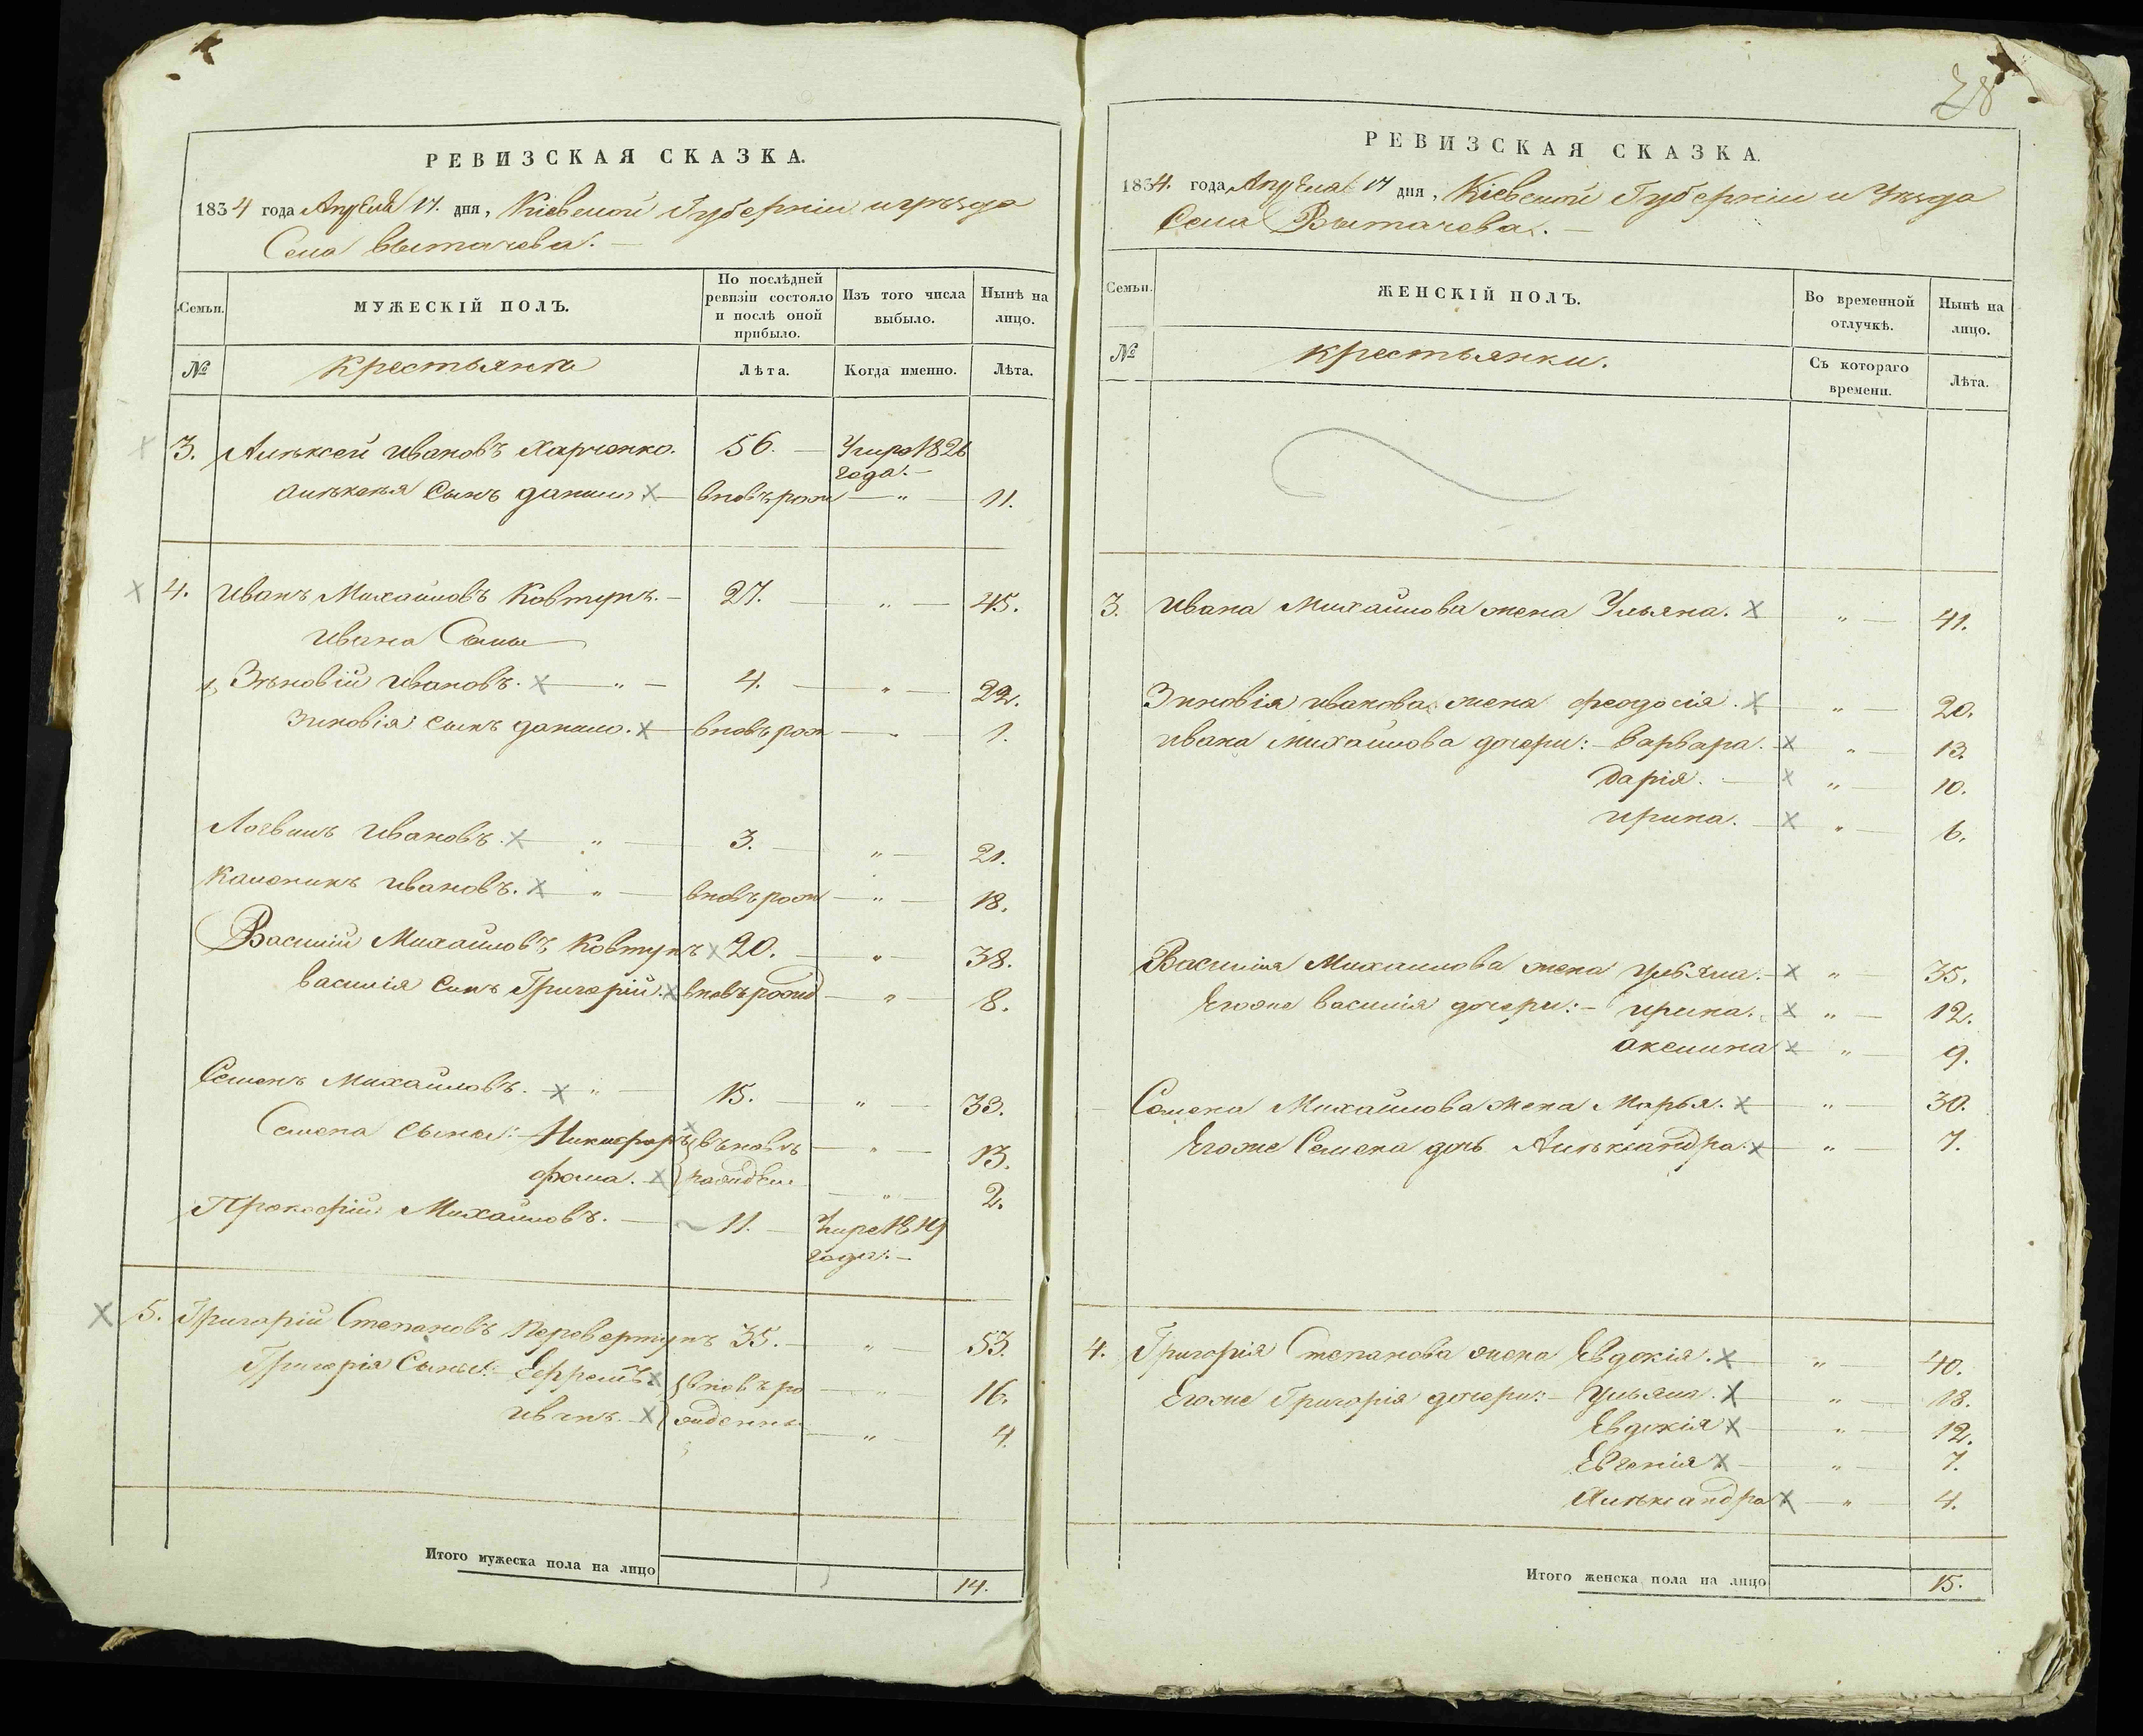 РЕВИЗСКАЯ СКАЗКА.
1834 года Апреля 17. дня, Кіевской Губерніи и уѣзда
Села Вытачева.
Семьи. МУЖЕСКІЙ ПОЛЪ. По послѣдней ревизіи состояло и послѣ оной прибыло. Изъ того числа выбыло. Нынѣ на лицо.
№ Крестьяне Лѣта. Когда именно. Лѣта.
3. Алѣксей Ивановъ Харченко. 56. Умре 1826
года.
Алѣксея сынъ Данило вновь рож " 11.
4. Иванъ Михайловъ Ковтунъ. 27. " 45.
Ивана Сыны
1, Зѣновій Ивановъ. " 4. " 22.
Зиновія сынъ Данило. вновь рож " 1.
Логвинъ Ивановъ. " 3. " 21.
Каленикъ Ивановъ. " вновь рож " 18.
Василій Михайловъ Ковтунъ 20. " 38.
Василія Сынъ Григорій. вновь рожд " 8.
Семенъ Михайловъ. " 15. " 33.
Семена Сыны: Никифоръ вновь " 13.
Фома. рожден " 2.
Прокофій Михайловъ. 11. Умре 1819
года.
5. Григорій Степановъ Перевертунъ 35. " 53.
Григорія Сыны: Ефремъ. вновь ро " 16.
Иванъ. жденны " 4.
Итого мужеска пола на лицо 14.
28
РЕВИЗСКАЯ СКАЗКА.
1834. года Апреля 17 дня, Кіевской Губерніи и Уѣзда
Села Вытачева.
Семьи. ЖЕНСКІЙ ПОЛЪ. Во временной отлучкѣ. Нынѣ на лицо.
№ Крестьянки. Съ котораго времени. Лѣта.
3. Ивана Михайлова жена Ульяна. " 41.
Зиновія Иванова жена Феодосія. " 20.
Ивана Михайлова дочери: Варвара. " 13.
Дарія. " 10.
Ирина. " 6.
Василія Михаилова жена Ульяна. " 35.
Егоже Василія дочери: Ирина. " 12.
Аксинна " 9.
Семена Михайлова жена Марья. " 30.
Егоже Семена дочь Алѣксандра. " 7.
4. Григорія Степанова жена Евдокія. " 40.
Егоже Григорія дочери: Ульяна. " 18.
Евдокія " 12.
Евгенія " 7.
Алѣксандра " 4.
Итого женска пола на лицо 15.